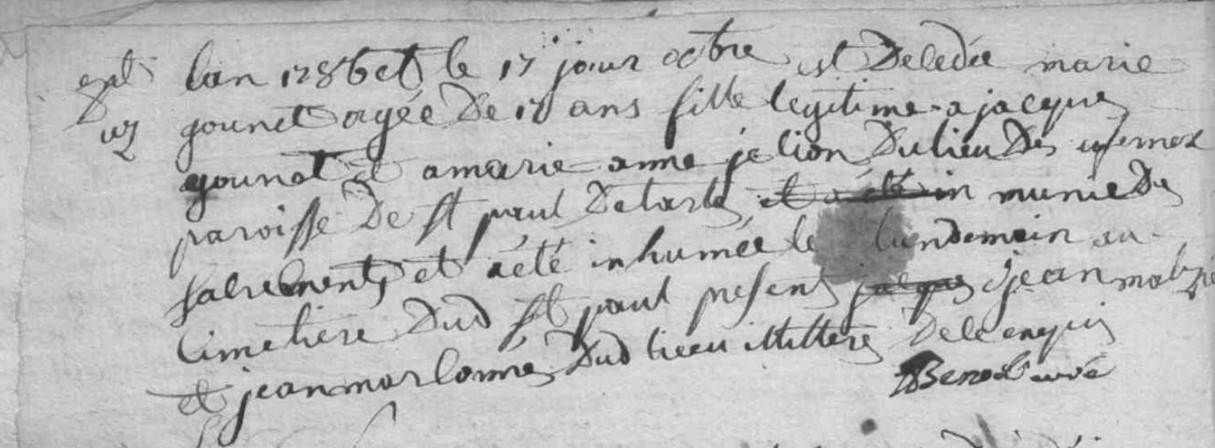 lan 1786 et le 17 jour octbre est Decedée marie
gounet agée De 18 ans fille legitime a jacques
gounot et a marie anne jelion Du lieu Des
paroisse De st paul Detartas et a été in munie Des
sacrements et a été inhumée le lendemain au
cimetiere Dud st paul presents jacques jean
et jean marlonne Dud lieu illiteré De ce enquis
Benoit curé